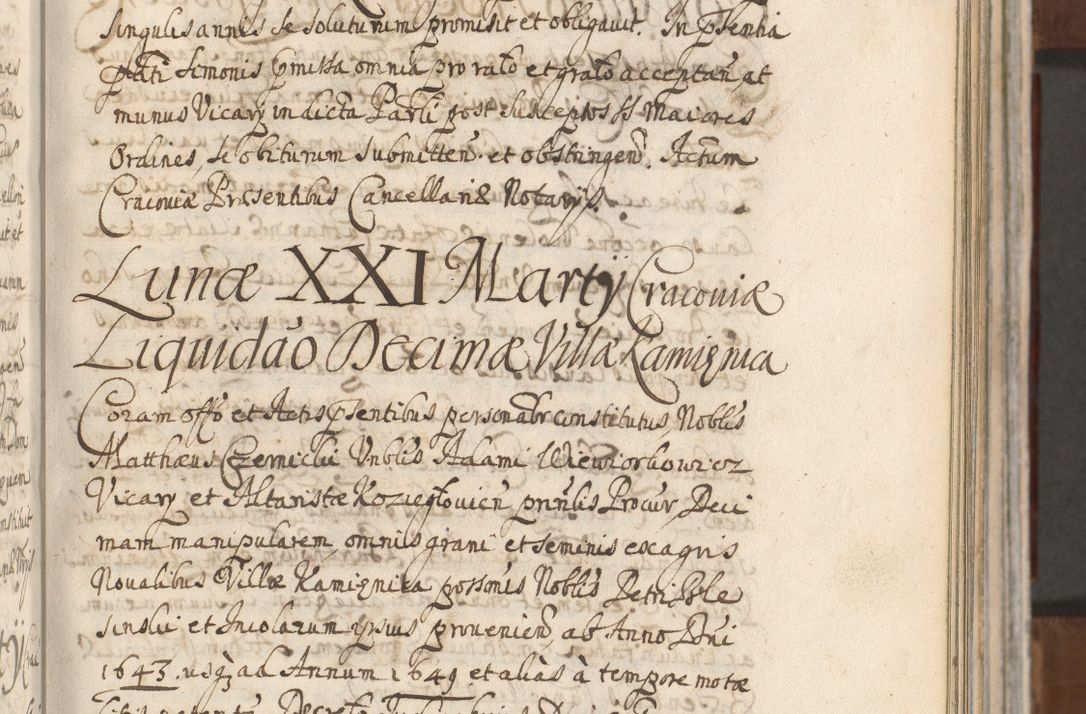 singulis annis se soluturum promisit et obligavit. In pñsentia
pſati Simonis pmissa omnia pro rato et grato acceptan̄, at
munus Vicarÿ in dicta Parli post susceptos SS Maiores
Ordines, se obiturum submitten̄. et obstringen̄. Actum
Cracoviæ Præsentibus Cancellarie Notarÿs.
Lunæ XXI Martÿ Cracoviæ
Liquidaõ Decimæ Villæ Kamięnica
Coram offo et Actis pñsentibus personalr constitutus Nobls
Matthæus Czernicki Vnblis Adami Wiewiorkowicz
Vicarÿ et Altaristæ Kozieglovien̄ prinlis Procur, Deci
mam manipularem, omnis grani et seminis ex agris
Novalibus Villæ Kamięnica possonis Noblis Petri
sinskii et Incolarum ipsius provenien̄, ab Anno Dni
1643. usq̃ ad Annum 1649 et aliàs à tempore motæ